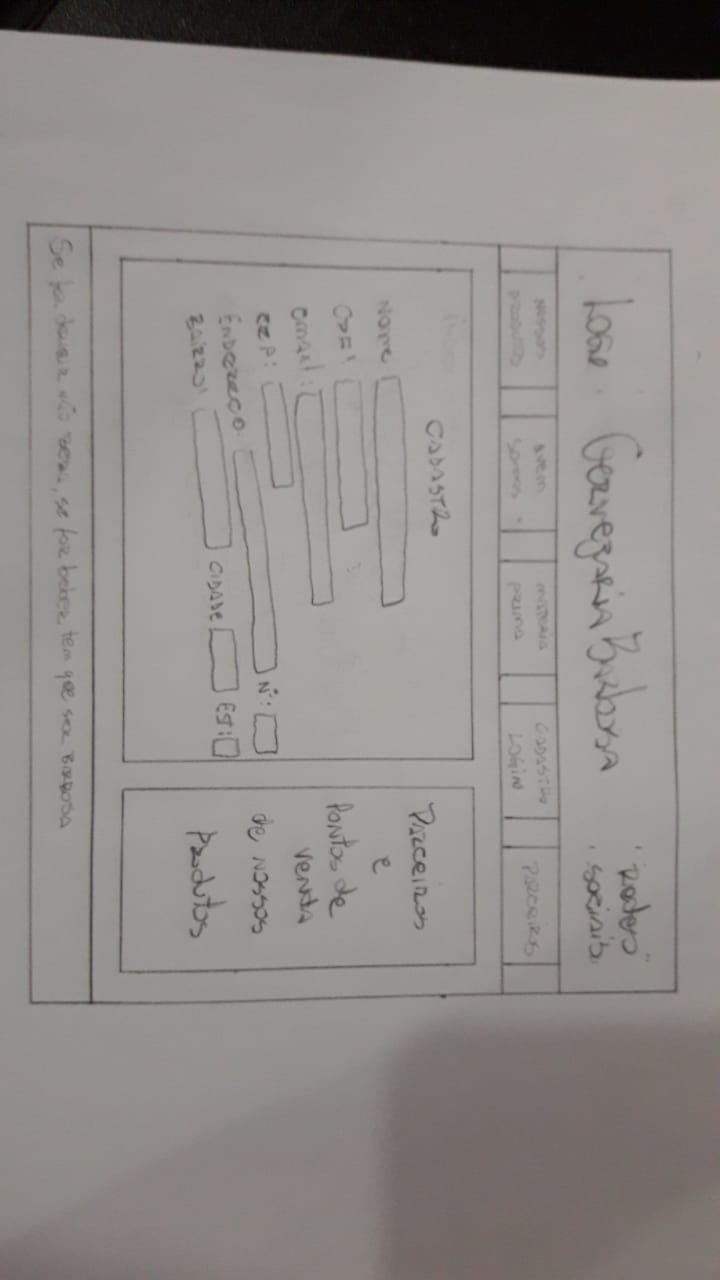 Logo Cervejaria Barbosa "Redes
sociais
Nossos
Produtos
Quem
Somos
Materia
Prima
Cadastro
Login
Parceiros
Cadastro
Nome
CPF:
email:
CEP:
Endereço Nº:
Bairro: Cidade Est:
Parceiros
e
Pontos de
venda
de nossos
Produtos
Se for dirigir não beba, se for beber tem que ser Barbosa